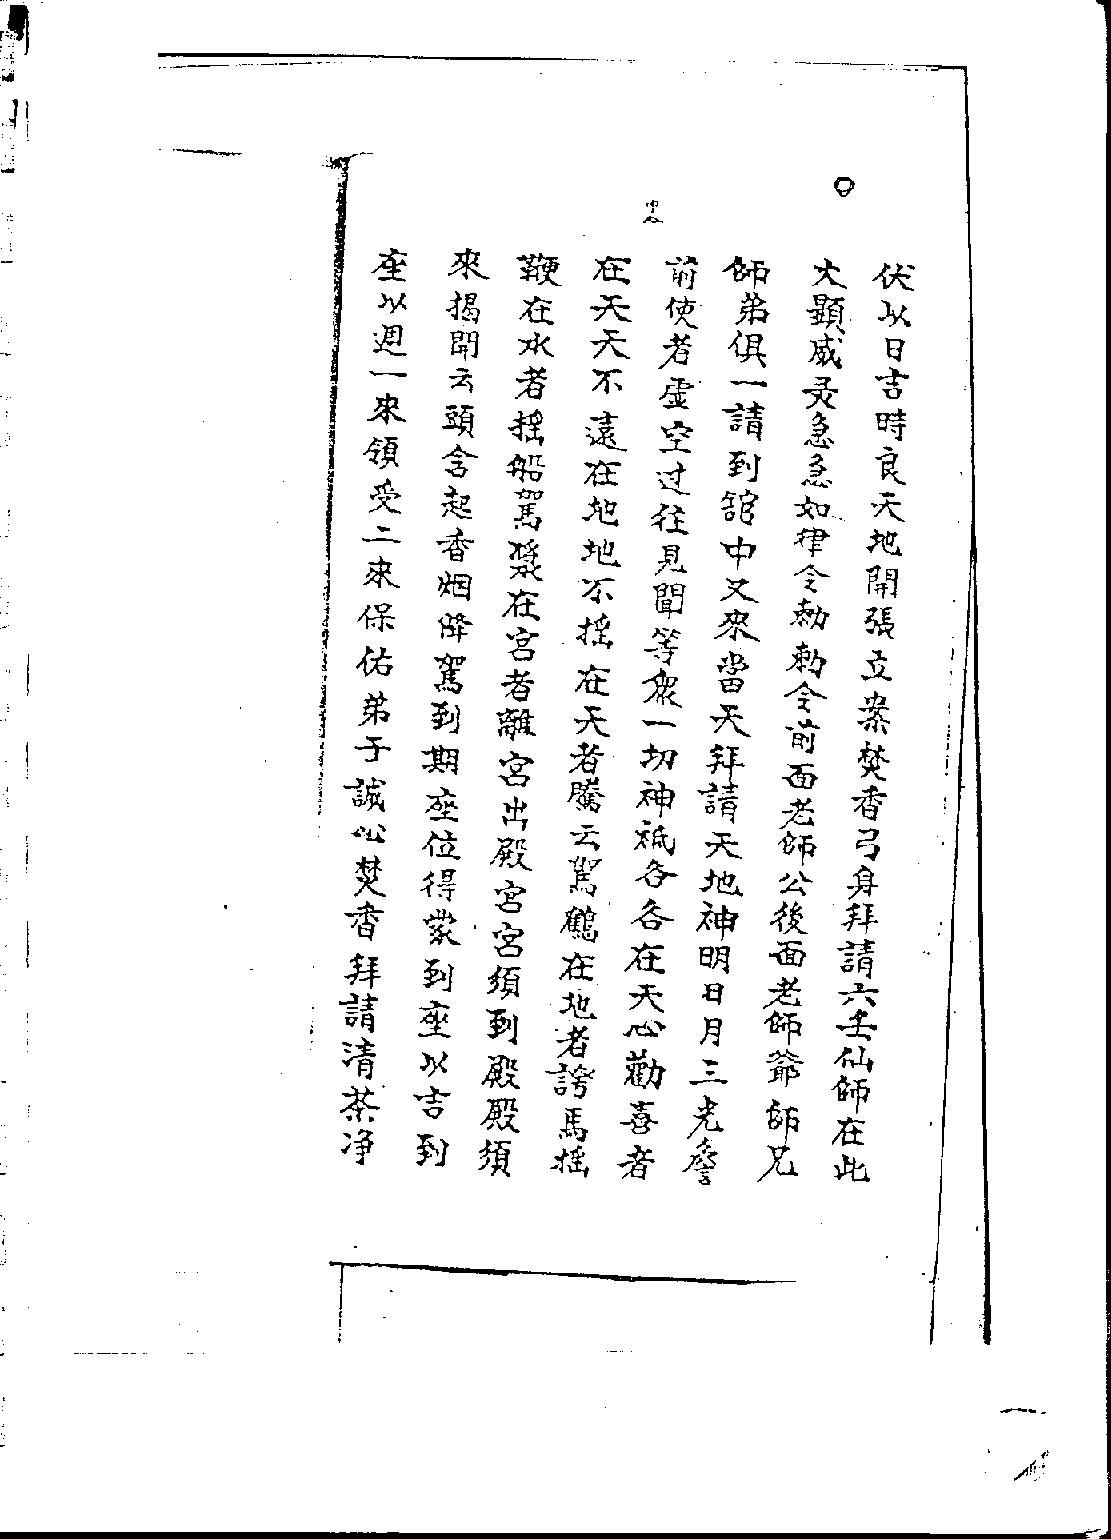 伏以日吉時良天地開張立案焚香弓身拜請六壬仙師在此
大顯威灵急急如律令勅勅令前面老師公後面老師爺師兄
師弟俱一請到舘中又來當天拜請天地神明日月三光詹
前使者虛空过往見聞等衆一切神祇各各在天心勸喜者
在天天不遠在地地不摇在天者騰云駕鶴在地者誇馬摇
鞭在水者摇船駕槳在宮者離宮出殿宮宮須到殿殿須
來揭開云頭含起香烟降駕到期座位得衆到座以吉到
座以週一來領受二來保佑弟子誠心焚香拜請清茶净